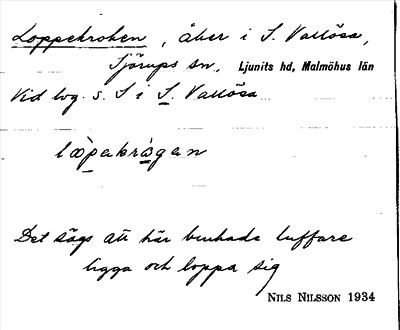 Loppekroken, åker i S. Vallösa,
Sjörups sn, Ljunits hd, Malmöhus län
Vid bvg. s. S i S. Vallösa
lòpakrågen
Det sägs att här brukade luffare
ligga och loppa sig
NILS NILSSON 1934